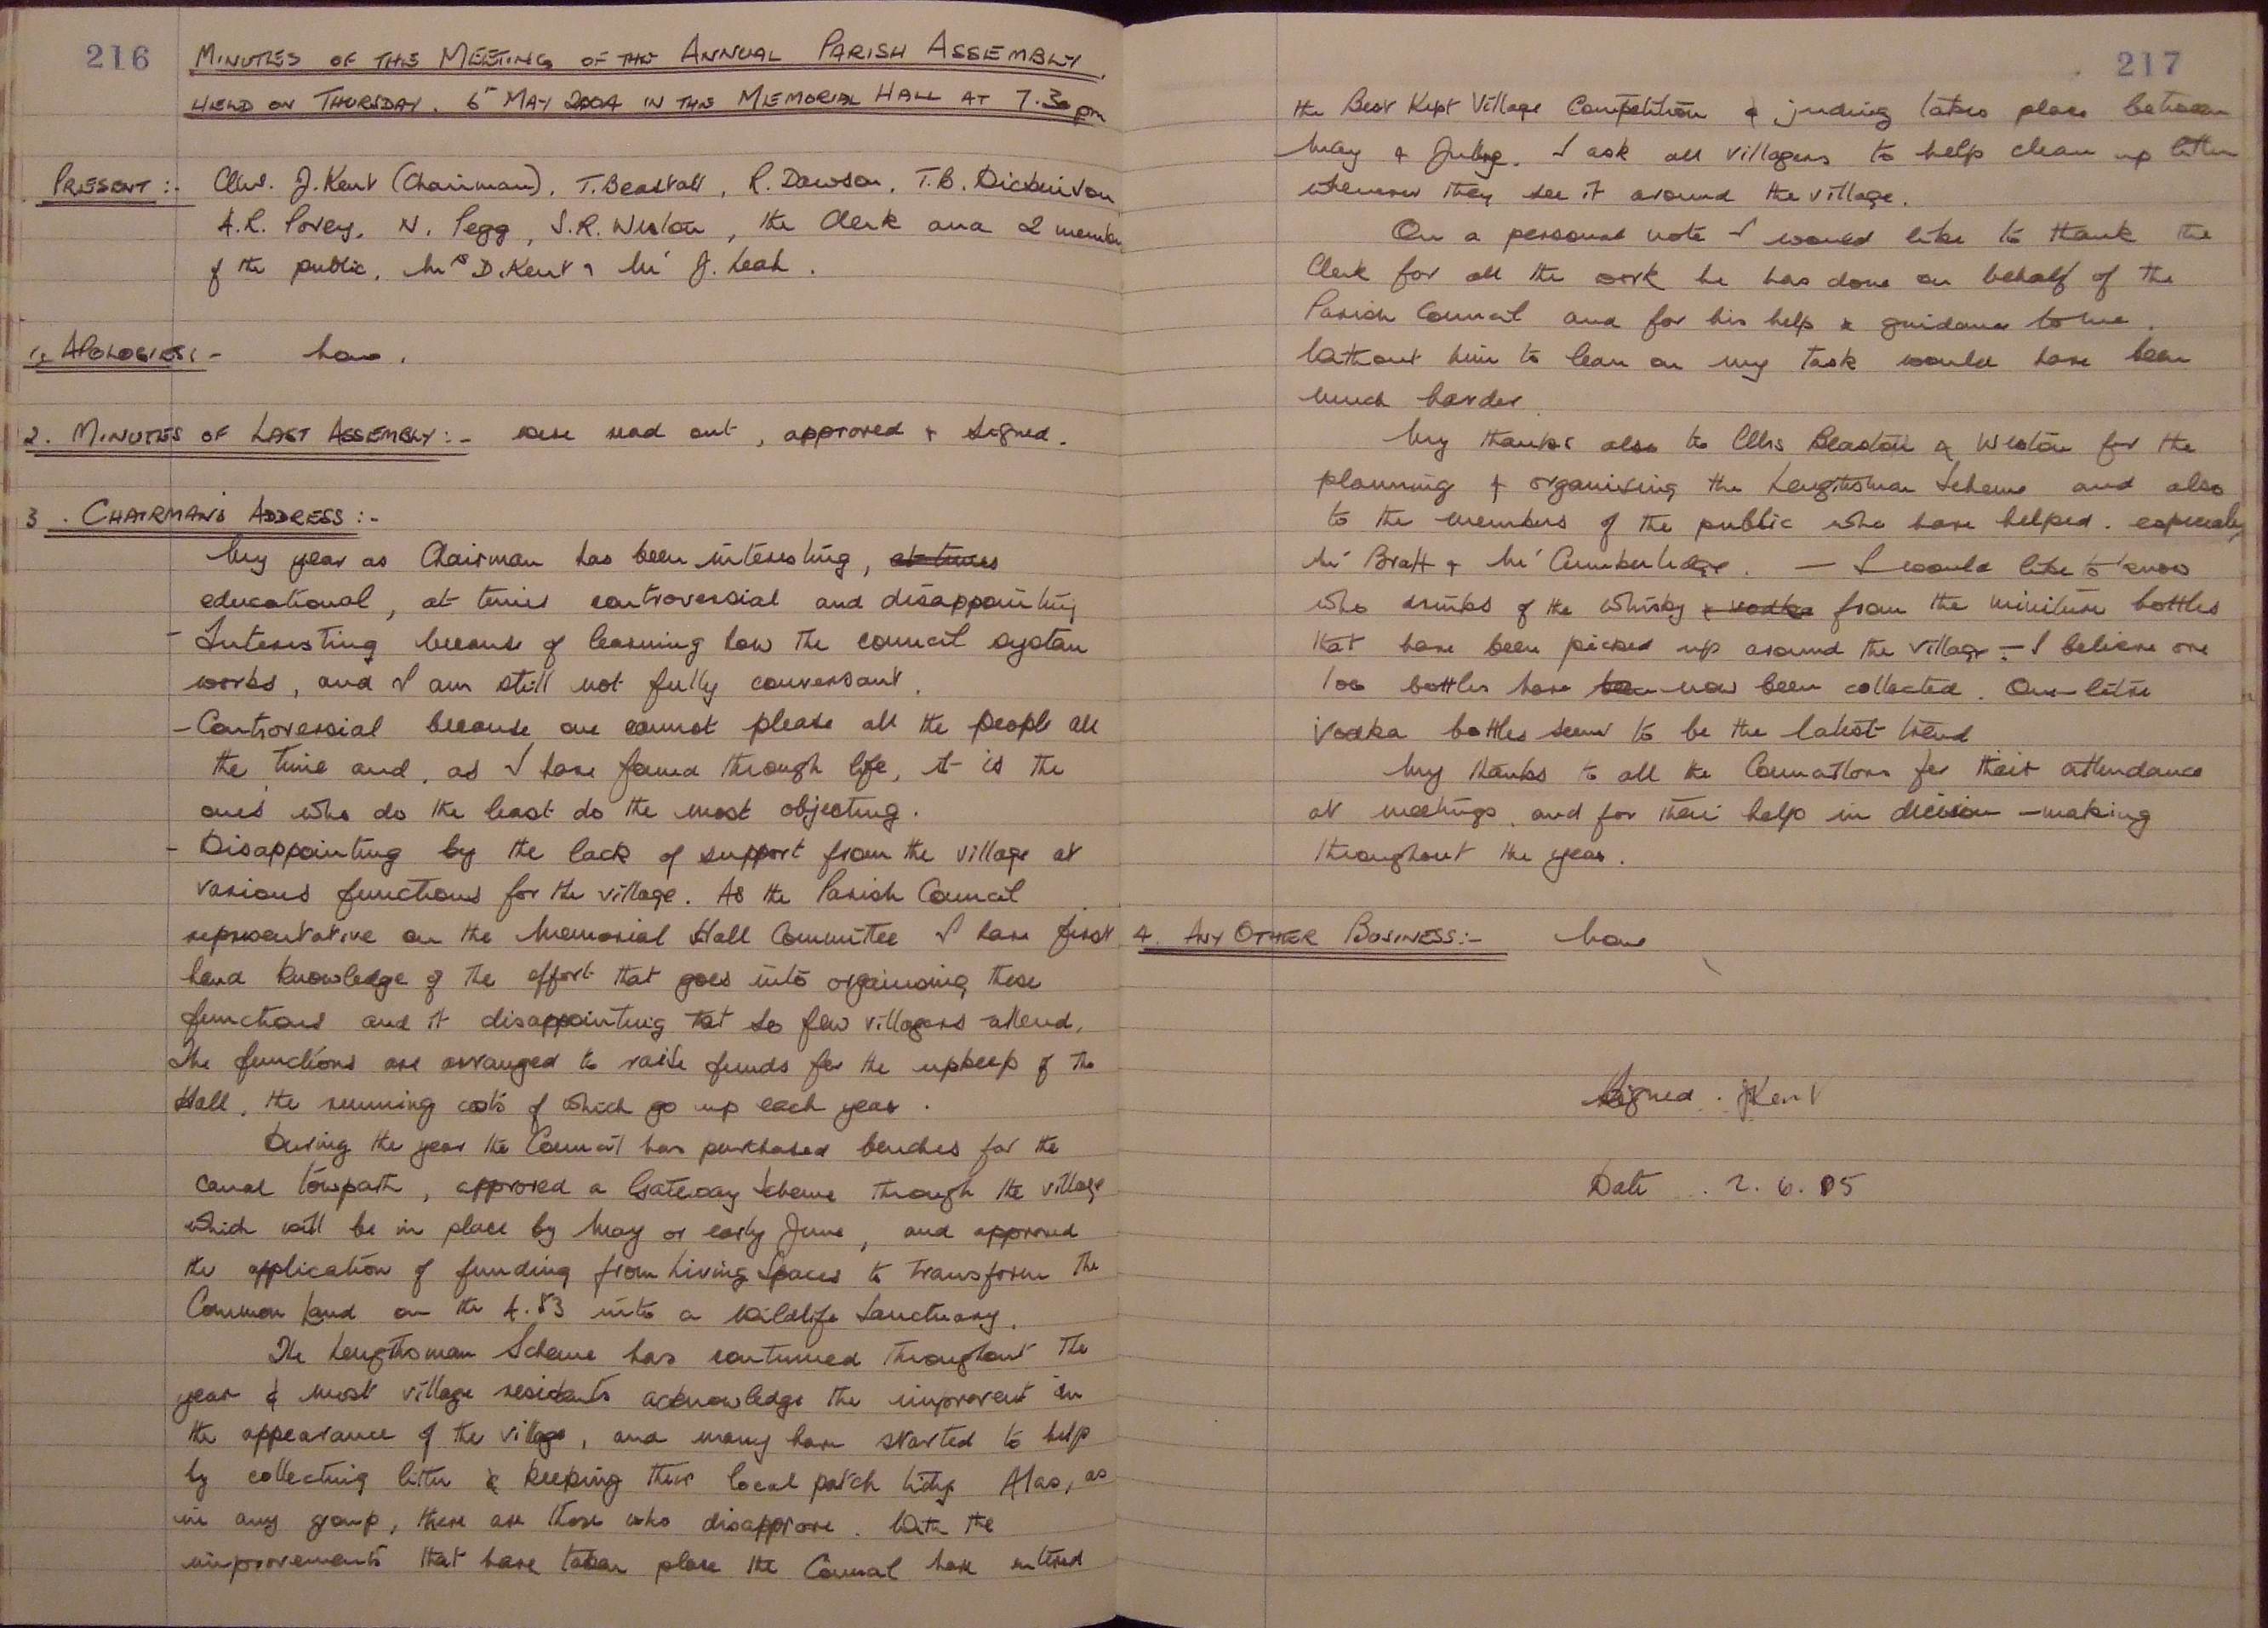 216
MINUTES OF THE MEETING OF THE ANNUAL PARISH ASSEMBLY
HELD ON THURSDAY. 6 MAY 2004 IN THE MEMORIAL HALL AT 7.30 pm
PRESENT :- Cllrs. J. Kent (Chairman), T. Beastall, R. Dawson, T.B. Dickinson
A.R. Povey, N. Pegg, S.R. Weston, the Clerk and 2 members
of the public, Mrs D. Kent & Mr J. Leah.
1. APOLOGIES :- None.
2. MINUTES OF LAST ASSEMBLY :- were read out, approved & signed.
3. CHAIRMAN'S ADDRESS :-
My year as Chairman has been interesting, at times
educational, at times controversial and disappointing
- Interesting because of learning how the council system
works, and I am still not fully conversant.
- Controversial because one cannot please all the people all
the time and, as I have found through life, it is the
ones who do the least do the most objecting.
- Disappointing by the lack of support from the village at
various functions for the village. As the Parish Council
representative on the Memorial Hall Committee I have first
hand knowledge of the effort that goes into organising these
functions and it disappointing tat so few villagers attend.
The functions are arranged to raise funds for the upkeep of the
Hall, the running costs of which go up each year.
During the year the Council has purchased benches for the
canal towpath, approved a Gateway Scheme through the village
which will be in place by May or early June, and approved
the application of funding from Living Spaces to transform the
Common Land on the A.53 into a Wildlife Sanctuary.
The Lengthsman Scheme has continued throughout the
year & most village residents acknowledge the improvent in
the appearance of the village, and many have started to help
by collecting litter & keeping their local patch tidy Alas, as
in any group, there are those who disapprove. With the
improvements that have taken place the Council have entered
217
the Best Kept Village Competition & judging takes place between
May & July. I ask all villagers to help clean up litter
whenever they see it around the village.
On a personal note I would like to thank the
Clerk for all the work he has done on behalf of the
Parish Council and for his help & guidance to me.
Without him to lean on my task would have been
much harder.
My thanks also to Cllrs Beastall & Weston for the
planning & organising the Lengthsman Scheme and also
to the members of the public who have helped. especially
Mr Bratt & Mr Cumberlidge. — I would like to know
who drinks of the whisky & vodka from the miniture bottles
that have been picked up around the village - I believe one
100 bottles have been now been collected. One-litre
Vodka bottles seem to be the latest trend
My thanks to all the Councillors for their attendance
at meetings, and for their help in decision-making
throughout the year.
4. ANY OTHER BUSINESS :- None
Signed . JKent
Date . 2.6.05